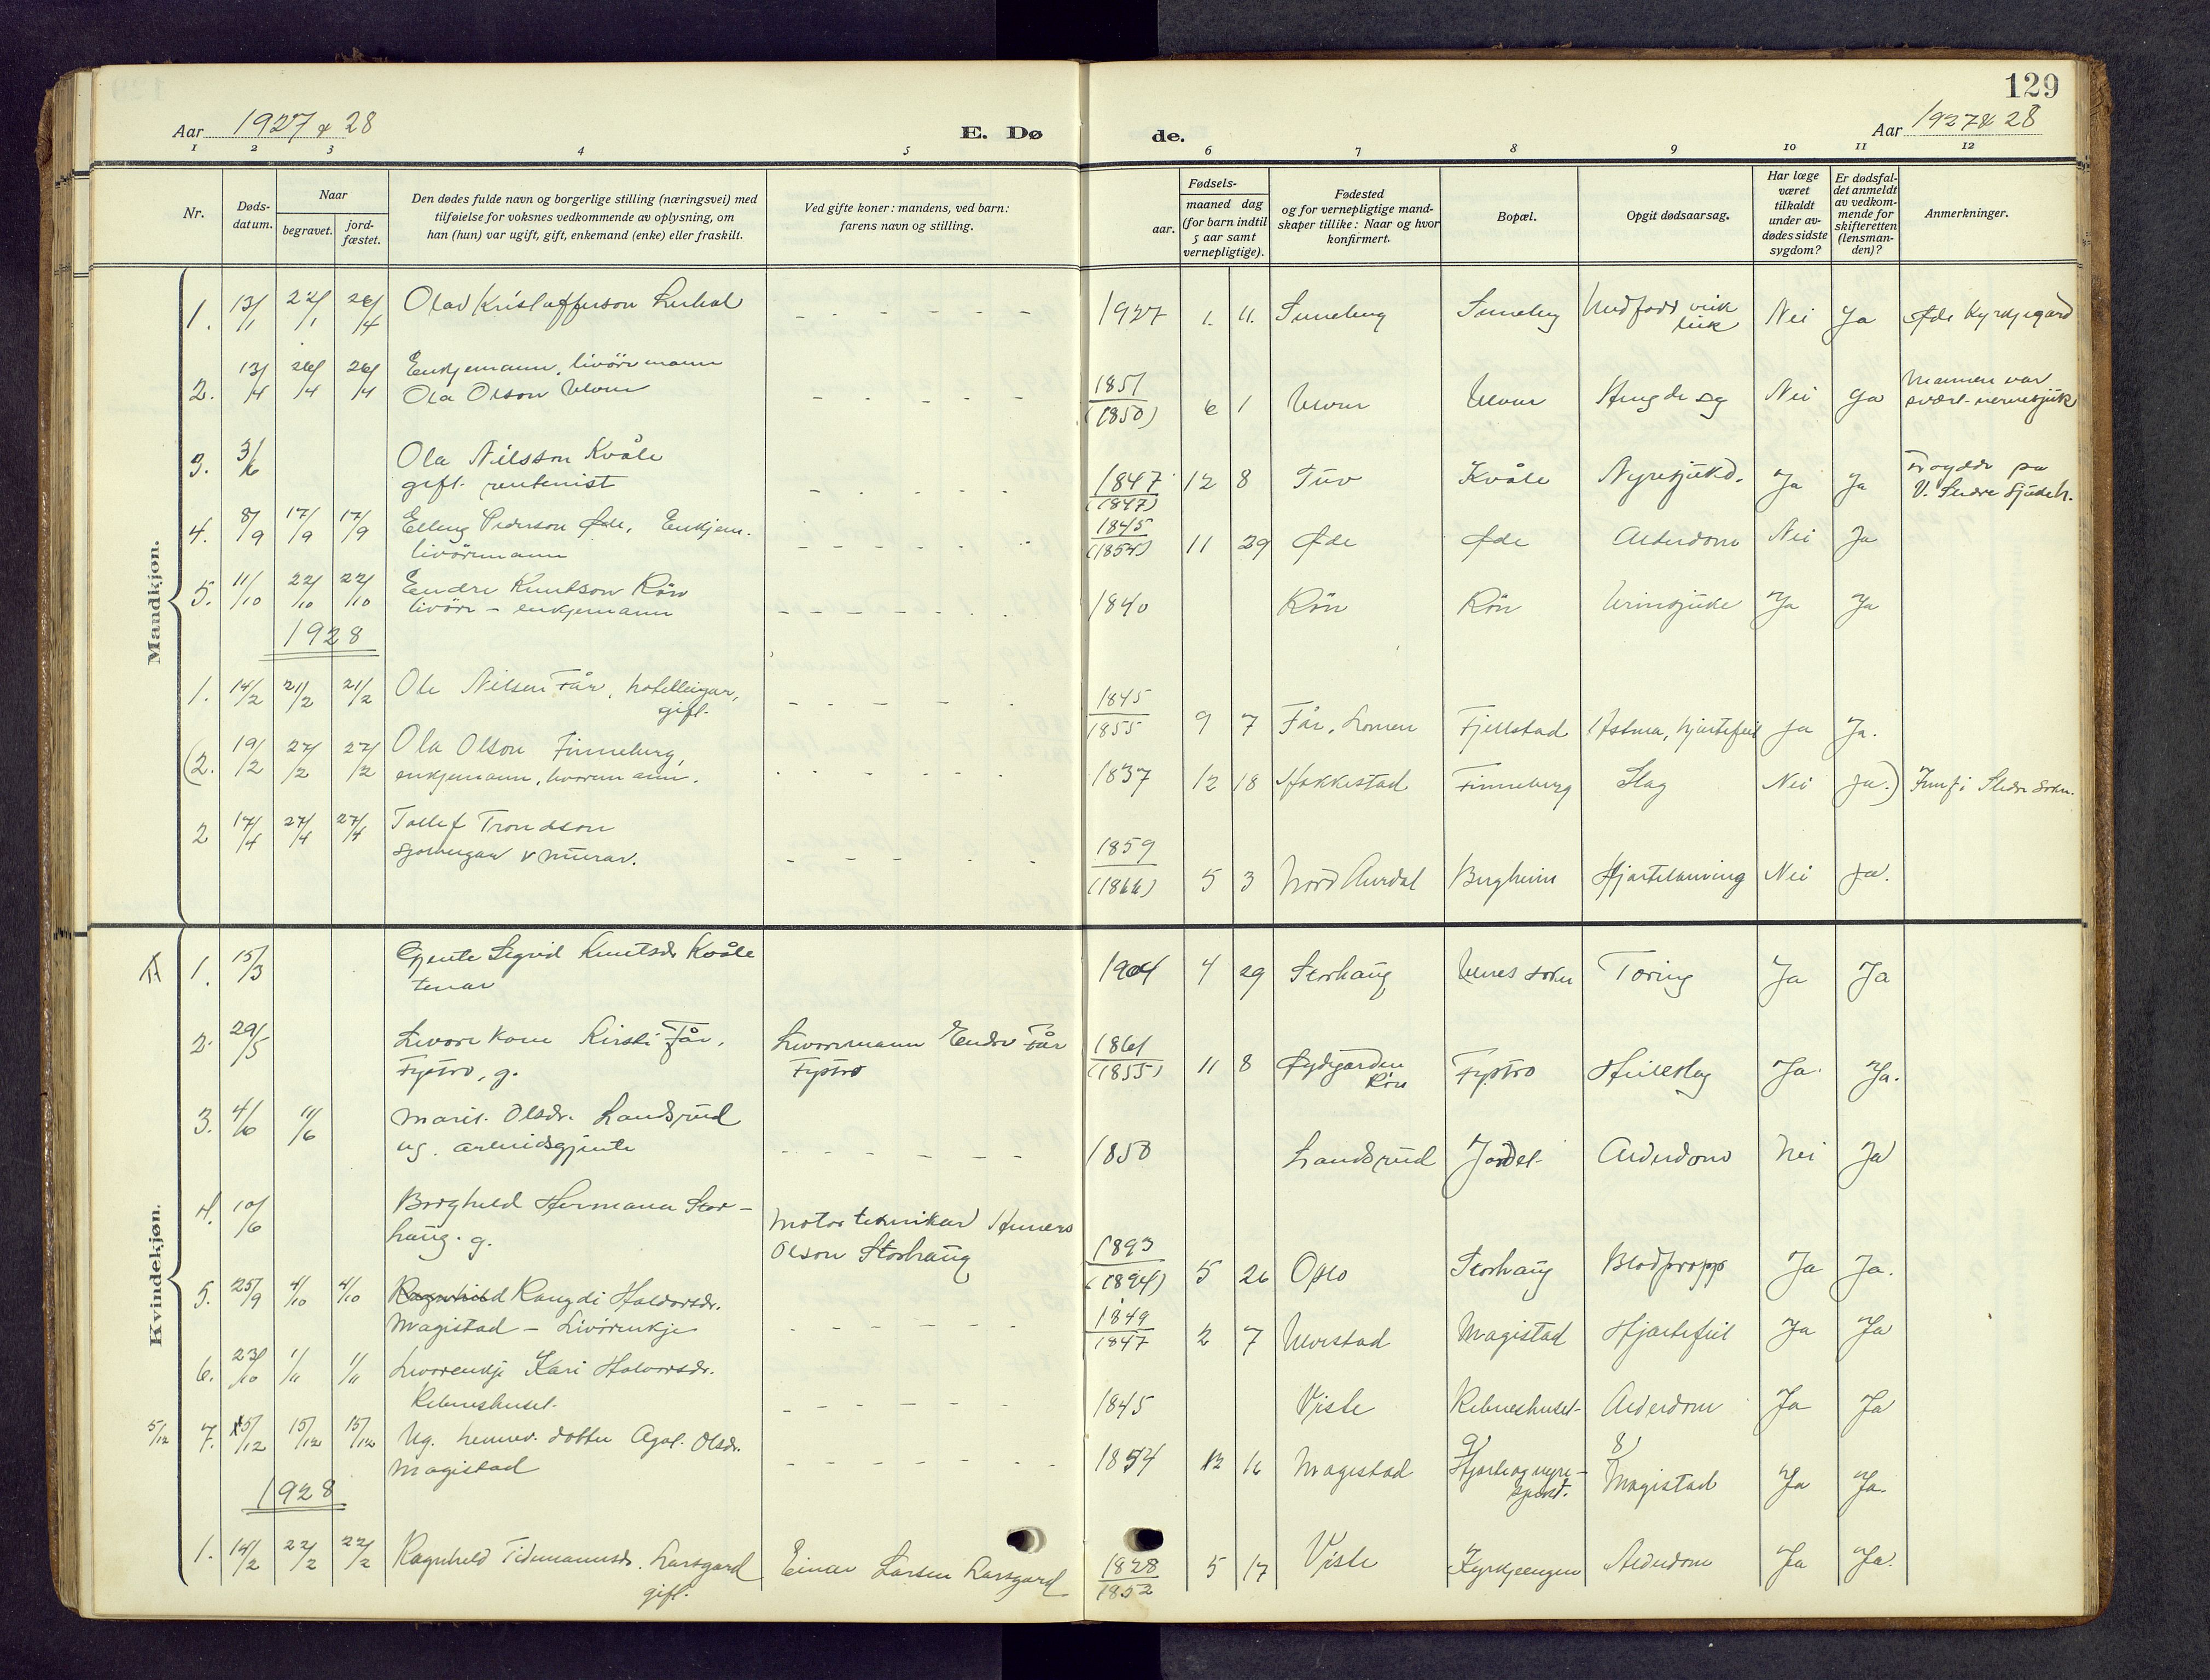 129
Aar 1927 & 28
E. Dø
de.
Aar 1927 & 28
1 2 3 4 5 6 7 8 9 10 11 12
Nr.
Døds-
datum.
Naar
begravet.
jord-
fæstet.
Den dødes fulde navn og borgerlige stilling (næringsvei) med
tilføielse for voksnes vedkommende av oplysning, om
han (hun) var ugift, gift, enkemand (enke) eller fraskilt.
Ved gifte koner: mandens, ved barn:
farens navn og stilling.
Fødsels-
aar.
maaned dag
(for barn indtil
5 aar samt
vernepligtige).
Fødested
og for vernepligtige mand-
skaper tillike: Naar og hvor
konfirmert.
Bopæl.
Opgit dødsaarsag.
Har læge
været
tilkaldt
under av-
dødes sidste
sygdom?
Er dødsfal-
det anmeldt
av vedkom-
mende for
skifteretten
(lensman-
den)?
Anmerkninger.
Mandkjøn.
1. 13/1 22/1 26/4 Olav Kristofferson 1927 1. 11. Nei Ja Øde Kyrkjegard
2. 13/4 26/4 26/4 Enkjemann, livöremann
Ola Olson 1851 (1850) 6 1 Nei Ja Mannen var
svært nervesjuk
3. 3/6 Ola Nilsson Kvåle
gift. rentenist 1847 (1847) 12 8 Tuv Kvåle Nyresjukd. Ja Ja Døydde på
V. Slidre Sjukeh.
4. 8/9 17/9 17/9 Elling Pederson Øde, Enkjem.
livörmann 1845 (1854) 11 29 Øde Øde Alderdom Nei Ja
5. 11/10 22/10 22/10 Endre Knutson Rön
livöre - enkjemann 1840 Rön Rön Urinsjuke Ja Ja
1928
1. 14/2 21/2 21/2 Ole Nilsen Får, hotelleigar,
gift. 1845 1855 9 7 Får, Lomen Fjellstad Astma, hjartefeil Ja Ja.
(2. 19/2 27/2 27/2 Ola Olson Finneberg,
enkjemann, 1837 12 18 Hakkestad Finneberg Slag Nei Ja.) Innf. i Slidre Sokn.
2 17/4 27/4 27/4 Tollef Trondson
v murar. 1859 (1866) 5 3 Nord Aurdal Bergheim Hjartelamming Nei Ja.
Kvindekjøn.
1. 15/3 Gjente Sigrid Knutsdr Kvåle
tenar 1904 4 29 Storhaug Ulnes sokn Tæring Ja Ja
2. 29/5 Livöre kone Kirsti Får,
Fystro, g. Livörmann Endre Får
Fystro 1861 (1855) 11 8 Øydgarden
Rön Fystro Heileslag Ja. Ja.
3. 4/6 11/6 Marit. Olsdr. Landsrud
ug. arbeidsgjente 1850 Landsrud Jordet Alderdom Nei Ja
4. 10/6 Borghild Hermana Stor-
haug. g. Motortekniker
Olson Storhaug 1893 (1894) 5 26 Oslo Storhaug Blodpropp Ja Ja.
5. 25/9 4/10 4/10 Ragnhild Rangdi Haldorsdr.
Magistad - Livörenkje 1849 1847 2 7 Ulvestad Magistad Hjartefeil Ja Ja
6. 23/10 1/11 1/11 Livörenkje Kari Halvorsdr.
Rebneshuset. 1845 Viste Rebneshuset Alderdom Ja Ja
5/12 7. 5/12 15/12 15/12 Ug. heimev. dotter Agot. Olsdr.
Magistad 1854 12 16 Magistad 9) Hjarte og nyre-
sjukd. 8) Magistad Ja Ja.
1928
1. 14/2 22/2 22/2 Ragnhild Tidemannsdr. Larsgard
gift. Einar Larsen Larsgard 1828 1852 5 17 Viste Kyrkjeengen Alderdom Ja Ja.